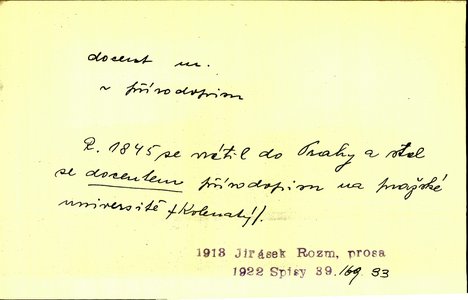 docent m.
~ přírodopisu
R. 1845 se vrátil do Prahy a stal
se docentem přírodopisu na pražské
universitě /Kolenatý/.
1913 Jirásek Rozm, prosa
1922 Spisy 39./69. 93